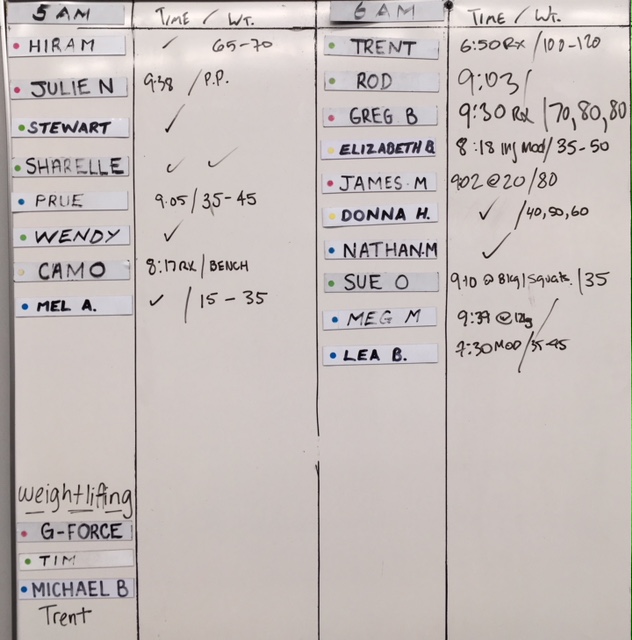 5 AM TIME / WT.
HIRAM ✓ 65-70
JULIE N 9:38 / P.P.
STEWART ✓
SHARELLE ✓ ✓
PRUE 9.05/35-45
WENDY ✓
CAMO 8:17 RX / BENCH
MEL A. ✓ / 15-35
weightlifting
G-FORCE
TIM
MICHAEL B
Trent
6 AM TIME / WT.
TRENT 6:50 RX / 100-120
ROD 9:03 /
GREG B 9:30 RX / 70,80,80
ELIZABETH B. 8:18 Inj Mod / 35-50
JAMES M 902 @ 20 / 80
DONNA H. ✓ / 40,50,60
NATHAN.M ✓
SUE O 9:10 @ 8kg / Squats. / 35
MEG M 9:39 @ 12kg /
LEA B. 7:30 MOD / 35-45